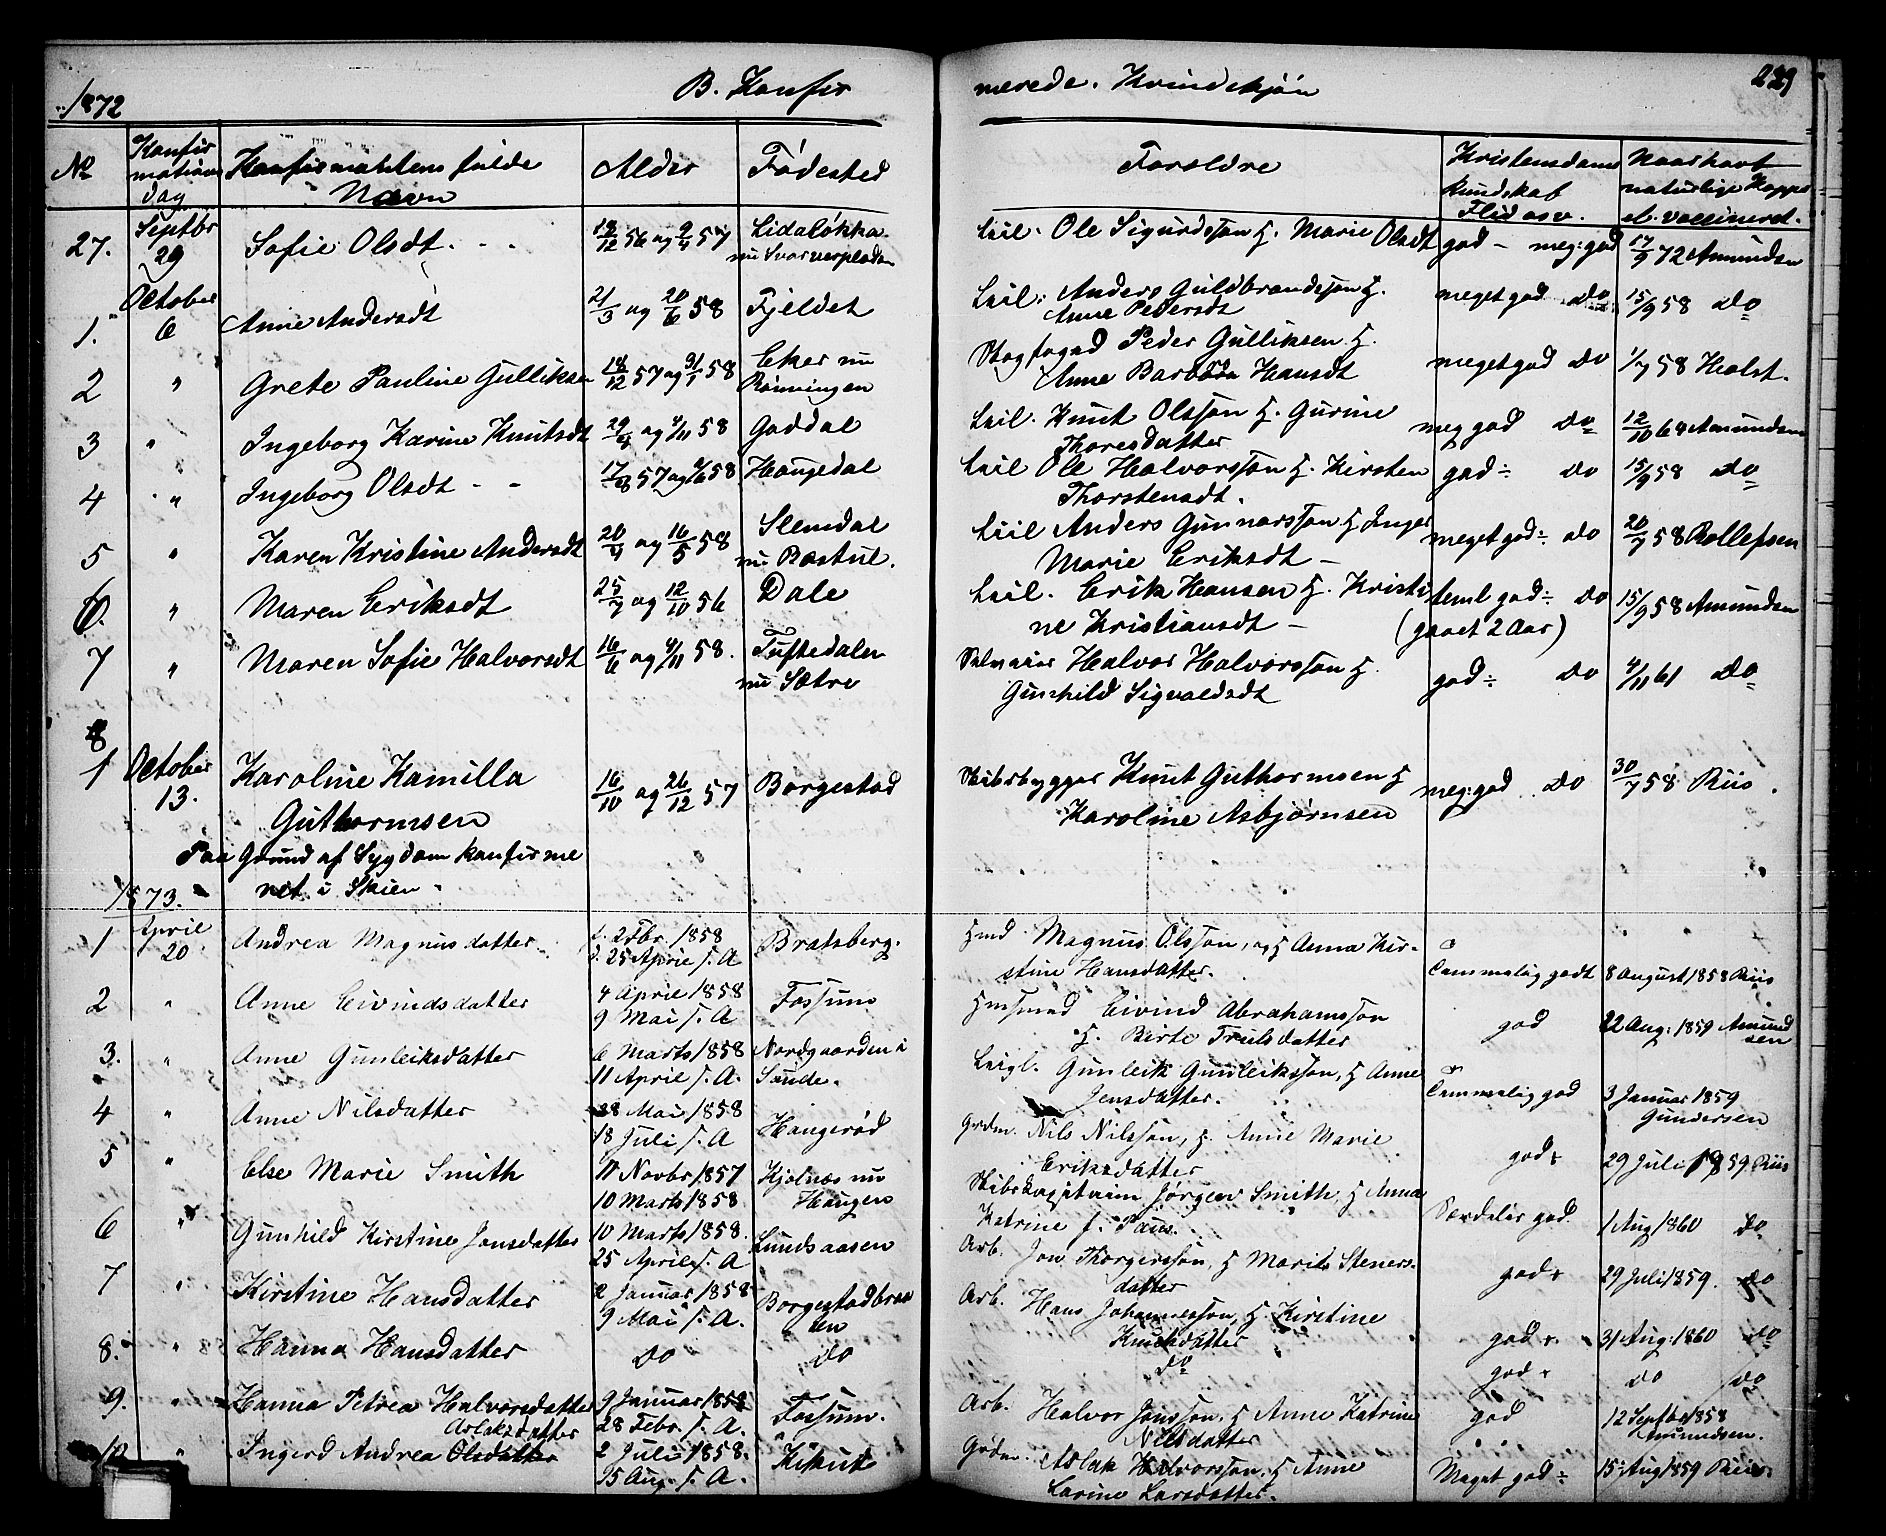 1872
B. Konfir
merede. Kvindekjön
229
No
Konfir
mations
dag
Konfirmantens fulde
Navn
Alder
Födested
Forældre
Kristendoms
Kundskab
Flid osv.
Naar havt
naturlige Kopper
el. vaccineret.
27. Septbr 29 Sofie Olsdt. 56 og 57
Lidaløkka
Leil. Ole Sigurdsson H. Marie Olsdt god - meg: god 72 Amundsen
1. October 6 Anne Andersdt 21/3 og 20/6 58 Fjeldet
Leil. Anders Guldbrandsson H.
Anne Pedersdt
meget god do 15/9 58 do
2 " Grete Pauline Gulliksen 57 og 58
Eker nu
Rönningen
Skogfoged Peder Gulliksen H.
Anne Barbara Hansdt
meget god do 1/7 58 Holst.
3 " Ingeborg Karine Knutsdt 58 Gaddal
Leil. Knut Olsson H. Gurine
Thoresdatter
meg god do 12/10 64 Amundsen
4 " Ingeborg Olsdt 57 og 58 Haugedal
Leil Ole Halvorsson H. Kirsten
Thorstensdt.
god ÷ do 15/9 58 do
5 " Karen Kristine Andersdt 20/4 og 16/5 58
Slemdal
nu Bæstul.
Leil Anders Gunnarsson H Inger
Marie Eriksdt -
meget god ÷ do 20/7 58 Rollefsen
6. " Maren Eriksdt 25/7 og 12/10 56 Dale
Leil. Erik Hansen H. Kristi
ne Kristiansdt -
teml god ÷ do
(gaaet 2 Aar)
15/9 58 Amundsen
7 " Maren Sofie Halvorsdt 16/6 og 4/11 58.
Tuftedalen
nu Sætre
Halvor Halvorsson H.
Gunhild Sigvaldsdt
god ÷ do 4/11 61 do
8
1 October 13. Karoline Kamilla
Guthormsen
16/10 og 26/12 57 Borgestad
Skibsbygger Knut Guthormsen H
Karoline Asbjørnsen
meg: god do 30/7 58 Riis.
Paa Grund af Sygdom konfirme
ret i Skien.
1873.
1 April 20 Andrea Magnusdatter
2 Fbr. 1858
25 Aprie s. A
Bratsberg.
Hmd Magnus Olsson, og H Anna Kir-
stine Hansdatter.
Temmelig godt 8 August 1858 Riis
2 " Anne Eivindsdatter
4 April 1858
9 Mai s. A
Fossum
Husmand Eivind Abrahamsson
H. Birte Trulsdatter
god 22 Aug. 1859 Amund
sen
3. " Anne Gunleiksdatter
6 Marts 1858
11 April s. A.
Nordgaarden i
Saude.
Leigl. Gunleik Gunleiksson, H Anne
Jensdatter.
Temmelig god 3 Januar 1859
Gundersen
4 " Anne Nilsdatter
28 Mai 1858
18 Juli s. A
Haugerød
Grdm. Nils Nilsson, H. Anne Marie
Eriksdatter
god 29 Juli 1859 Riis
5 " Else Marie Smith
11 Novbr 1857
10 Marts 1858.
Kjolnæs nu
Haugen
Skibskapitaim Jørgen Smith, H Anna
Katrine f. Paus.
Særdeles god. 1 Aug 1860 do
6 " Gunhild Kirstine Jonsdatter
10 Marts 1858.
25 April s. A
Lundsaasen
Arb. Jon Thorgersson, H Marite Steners-
datter
god 29 Juli 1859. do
7 " Kirstine Hansdatter
2 Januar 1858
9 Mai s. A.
Borgestadbraa
ten
Arb. Hans Johannesson, H Kirstine
Knutsdatter
god 31 Aug. 1860 do
8. " Hanna Hansdatter do do do god do do
9 " Hanna Petrea Halvorsdatter
9 Januar 1858
28 Febr s. A.
Fossum.
Arb. Halvor Jonsson, H Anne Katrine
Nilsdatter
god 12 Septbr 1858
Amundsen.
10 " Ingerd Andrea Olsdatter
Aslaksdatter
2 Juli 1858.
15 Aug. s. A.
Kikut
Grdm. Aslak Halvorsson, H Anne
Larine Larsdatter.
Meget god ÷ 15 Aug 1859 Riis